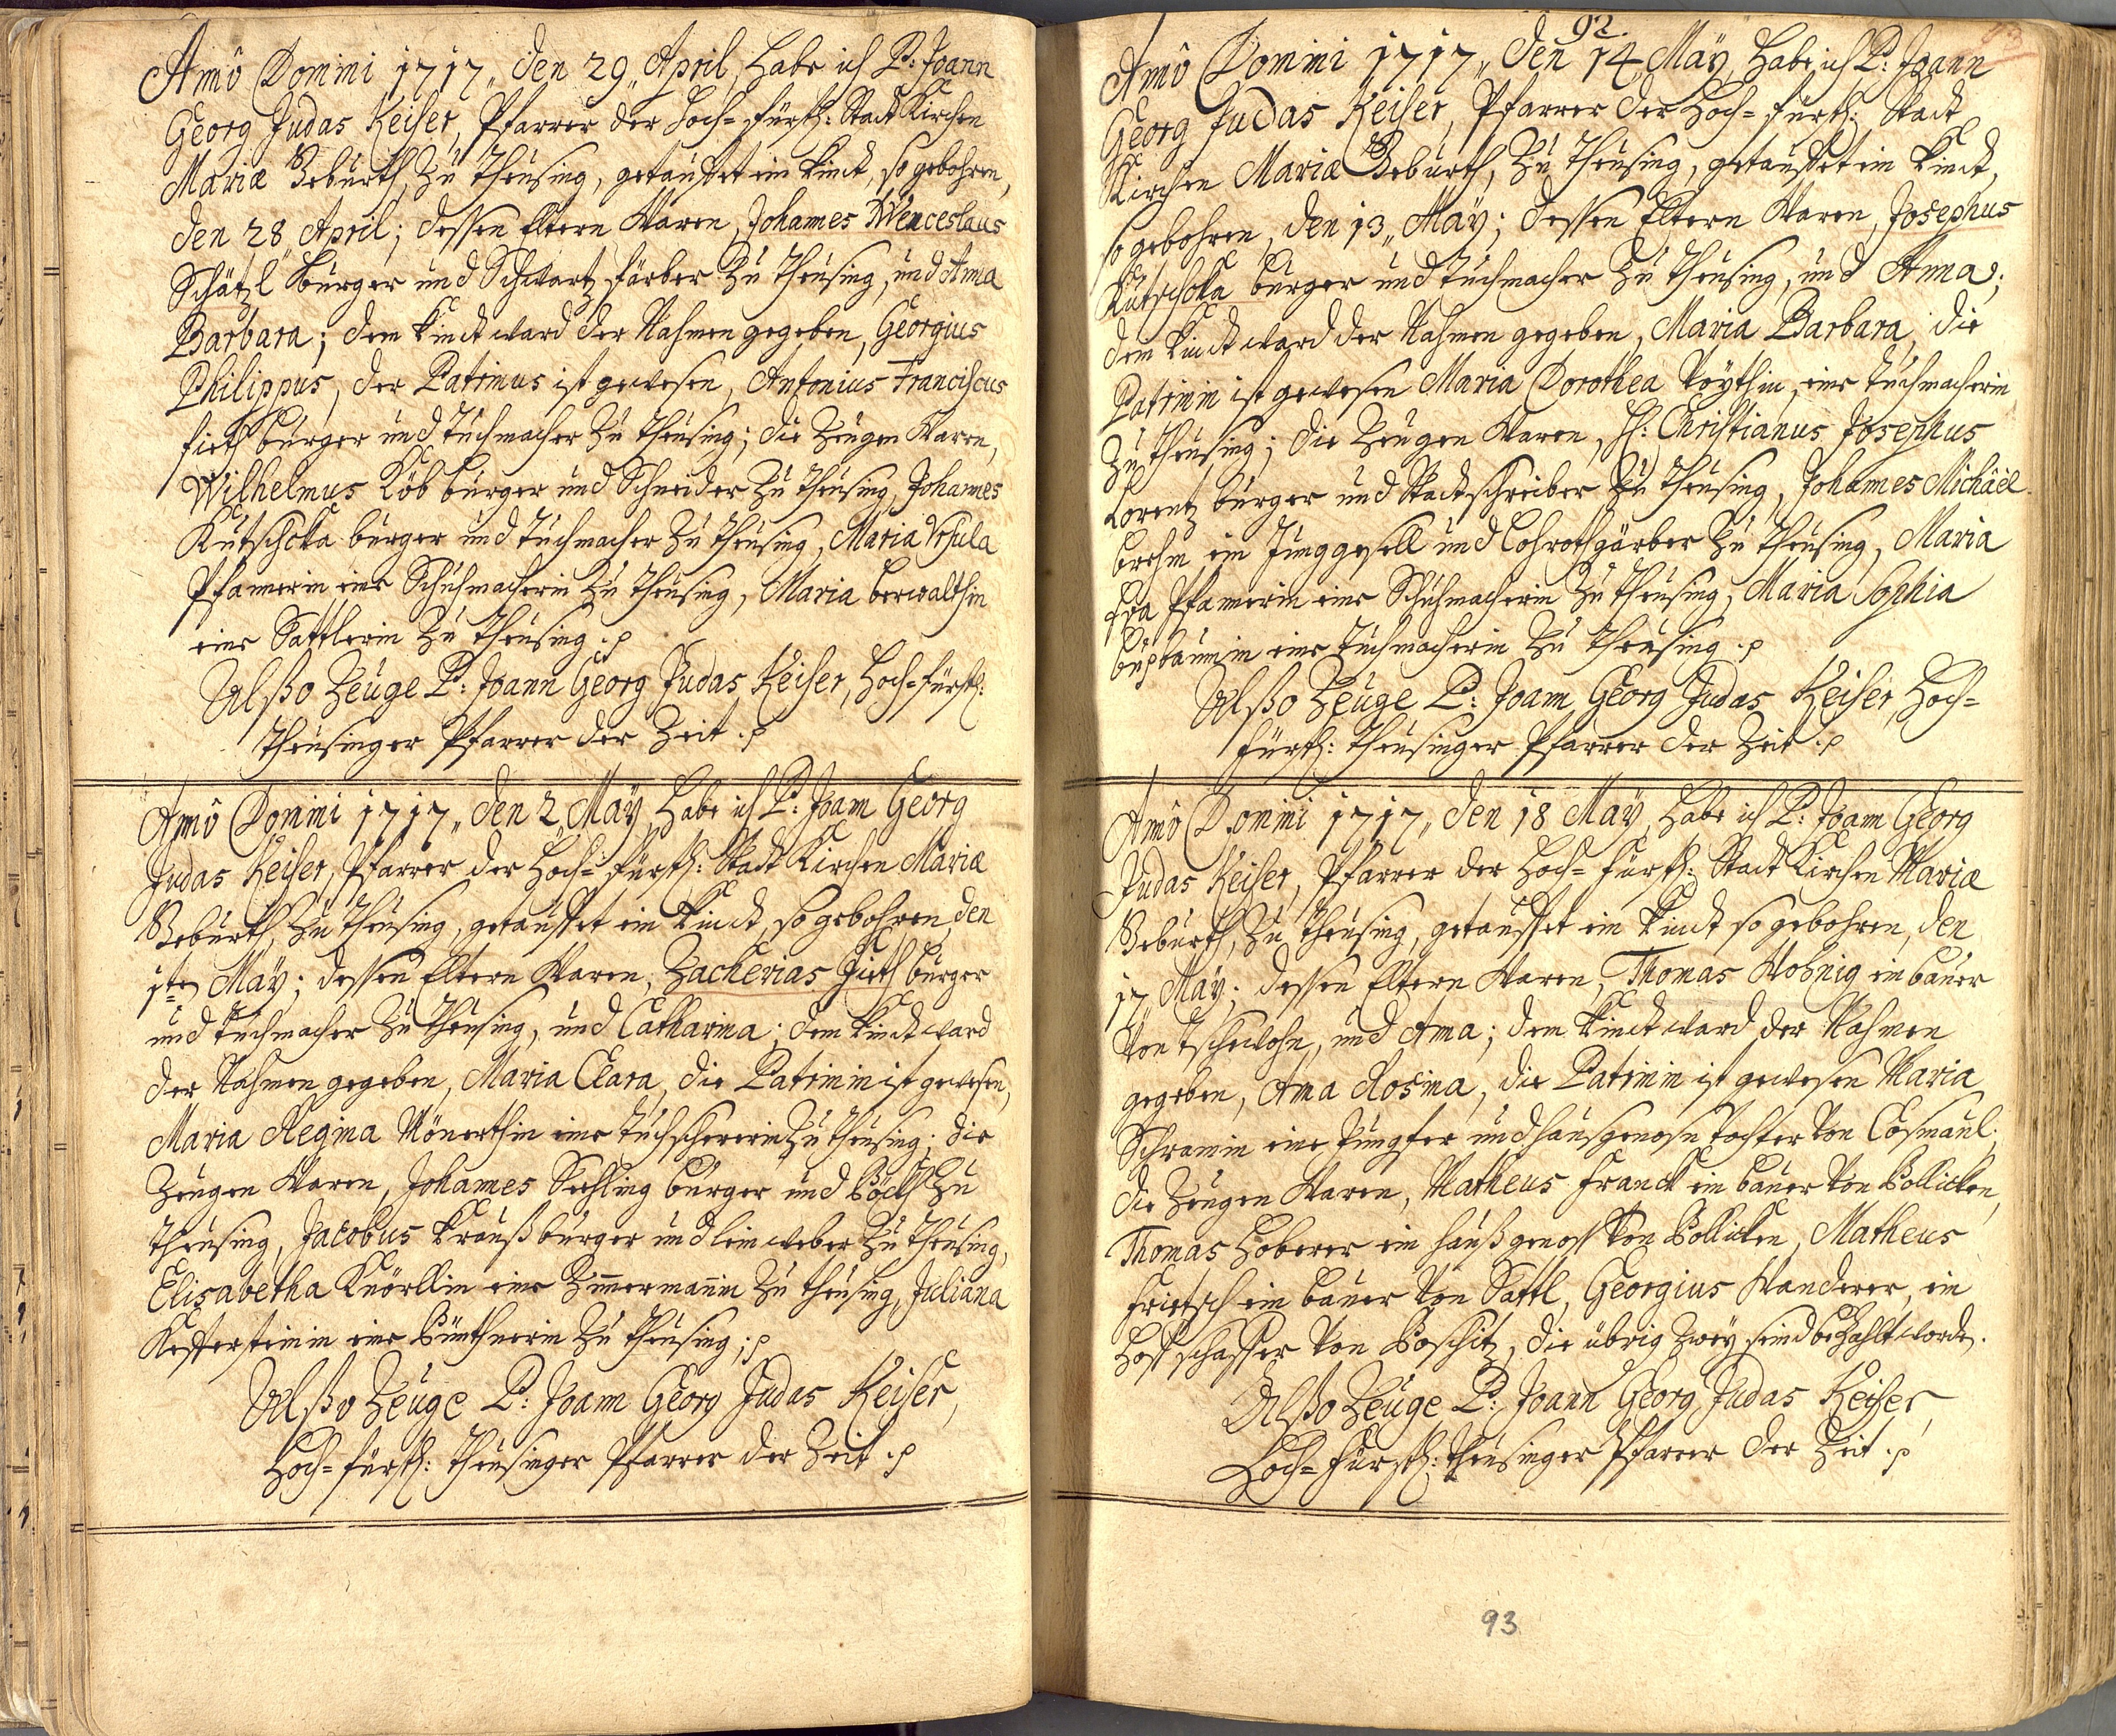 Anno Domini 1717, den 29 April, habe ich P: Joann
Georg Judas Keiser, Pfarrer der Hoch-fürstl: Stadt Kirchen
Mariæ Geburth, zu Theusing, getauffet ein Kindt, so gebohren,
den 28 April; dessen Eltern Waren, Johannes Wenceslaus
Schätzl Burger und Schwartz färber zu Theusing, und Anna
Barbara; dem Kindt ward der Nahmen gegeben, Georgius
Philippus, der Patrinus ist gewesen, Antonius Franciscus
burger und Tuchmacher zu Theusing; die Zeugen Waren,
Wilhelmus Löb burger und Schneider zu Theusing, Johannes
Kutschcka burger und Tuchmacher zu Theusing, Maria Ursula
Pfannerin eine Schuhmacherin zu Theusing, Maria berwalthin
eine Sattlerin zu Theusing.
Alßo Zeuge P: Joann Georg Judas Keiser, Hoch-fürstl:
Theusinger Pfarrer der Zeit.
Anno Domini 1717, den 2 May, habe ich P: Joann Georg
Judas Keiser, Pfarrer der Hoch-fürstl: Stadt Kirchen Mariæ
Geburth, zu Theusing, getauffet ein Kindt, so gebohren, den
1ten May; dessen Eltern Waren, Zacherias burger
und Tuchmacher zu Theusing, und Catharina; dem Kindt ward
der Nahmen gegeben, Maria Clara, die Patrinin ist gewesen,
Maria Regina Mönerthin eine Tuchschererin zu Theusing; die
Zeugen Waren, Johannes Sechling burger und Böckh zu
Theusing, Jacobus Krauß burger und leinweber zu Theusing,
Elisabetha Knörllin eine Zimmermannin zu Theusing, Juliana
Kesterteinin eine Bünthnerin zu Theusing;
Alßo Zeuge P: Joann Georg Judas Keiser,
Hoch-fürstl: Theusinger Pfarrer der Zeit.
92.
93
Anno Domini 1717, den 14 May, habe ich P: Joann
Georg Judas Keiser, Pfarrer der Hoch-fürstl: Stadt
Kirchen Mariæ Geburth, zu Theusing, getauffet ein Kindt,
so gebohren, den 13, May; dessen Eltern Waren, Josephus
Kutschcka burger und Tuchmacher zu Theusing, und Anna;
dem Kindt ward der Nahmen gegeben, Maria Barbara, die
Patrinin ist gewesen Maria Dorothea Voythin, eine Tuchmacherin
zu Theusing; die Zeugen Waren, H: Christianus Josephus
Lorentz burger und Stadtschreiber zu Theusing, Johannes Michäel
brehm ein Junggesell und Lohrothgärber zu Theusing, Maria
Eva Pfannerin eine Schuhmacherin zu Theusing, Maria Sophia
buxbaumin eine Tuchmacherin zu Theusing.
Alßo Zeuge P: Joann Georg Judas Keiser, Hoch-
fürstl: Theusinger Pfarrer der Zeit.
Anno Domini 1717, den 18 May, habe ich P: Joann Georg
Judas Keiser, Pfarrer der Hoch-fürstl: Stadt Kirchen Mariæ
Geburth, zu Theusing, getauffet ein Kindt so gebohren, den
17 May; dessen Eltern Waren, Thomas Wohnig ein bauer
Von Tschewohn, und Anna; dem Kindt ward der Nahmen
gegeben, Anna Rosina, die Patrinin ist gewesen Maria
Schramin eine Jungfer und hausgenosn Tochter Von Cosmaul;
die Zeugen Waren, Matheus Franck ein bauer Von Pollicken,
Thomas Hoberer ein haußgenoss Von Pollicken, Matheus
Frietsch ein bauer Von Sattl, Georgius Wanderer, ein
Hoffschaffer Von Poschitz, die übrig zwey seind bezahlt worden.
Alßo Zeuge P: Joann Georg Judas Keiser,
Hoch-fürstl: Theusinger Pfarrer der Zeit.
93